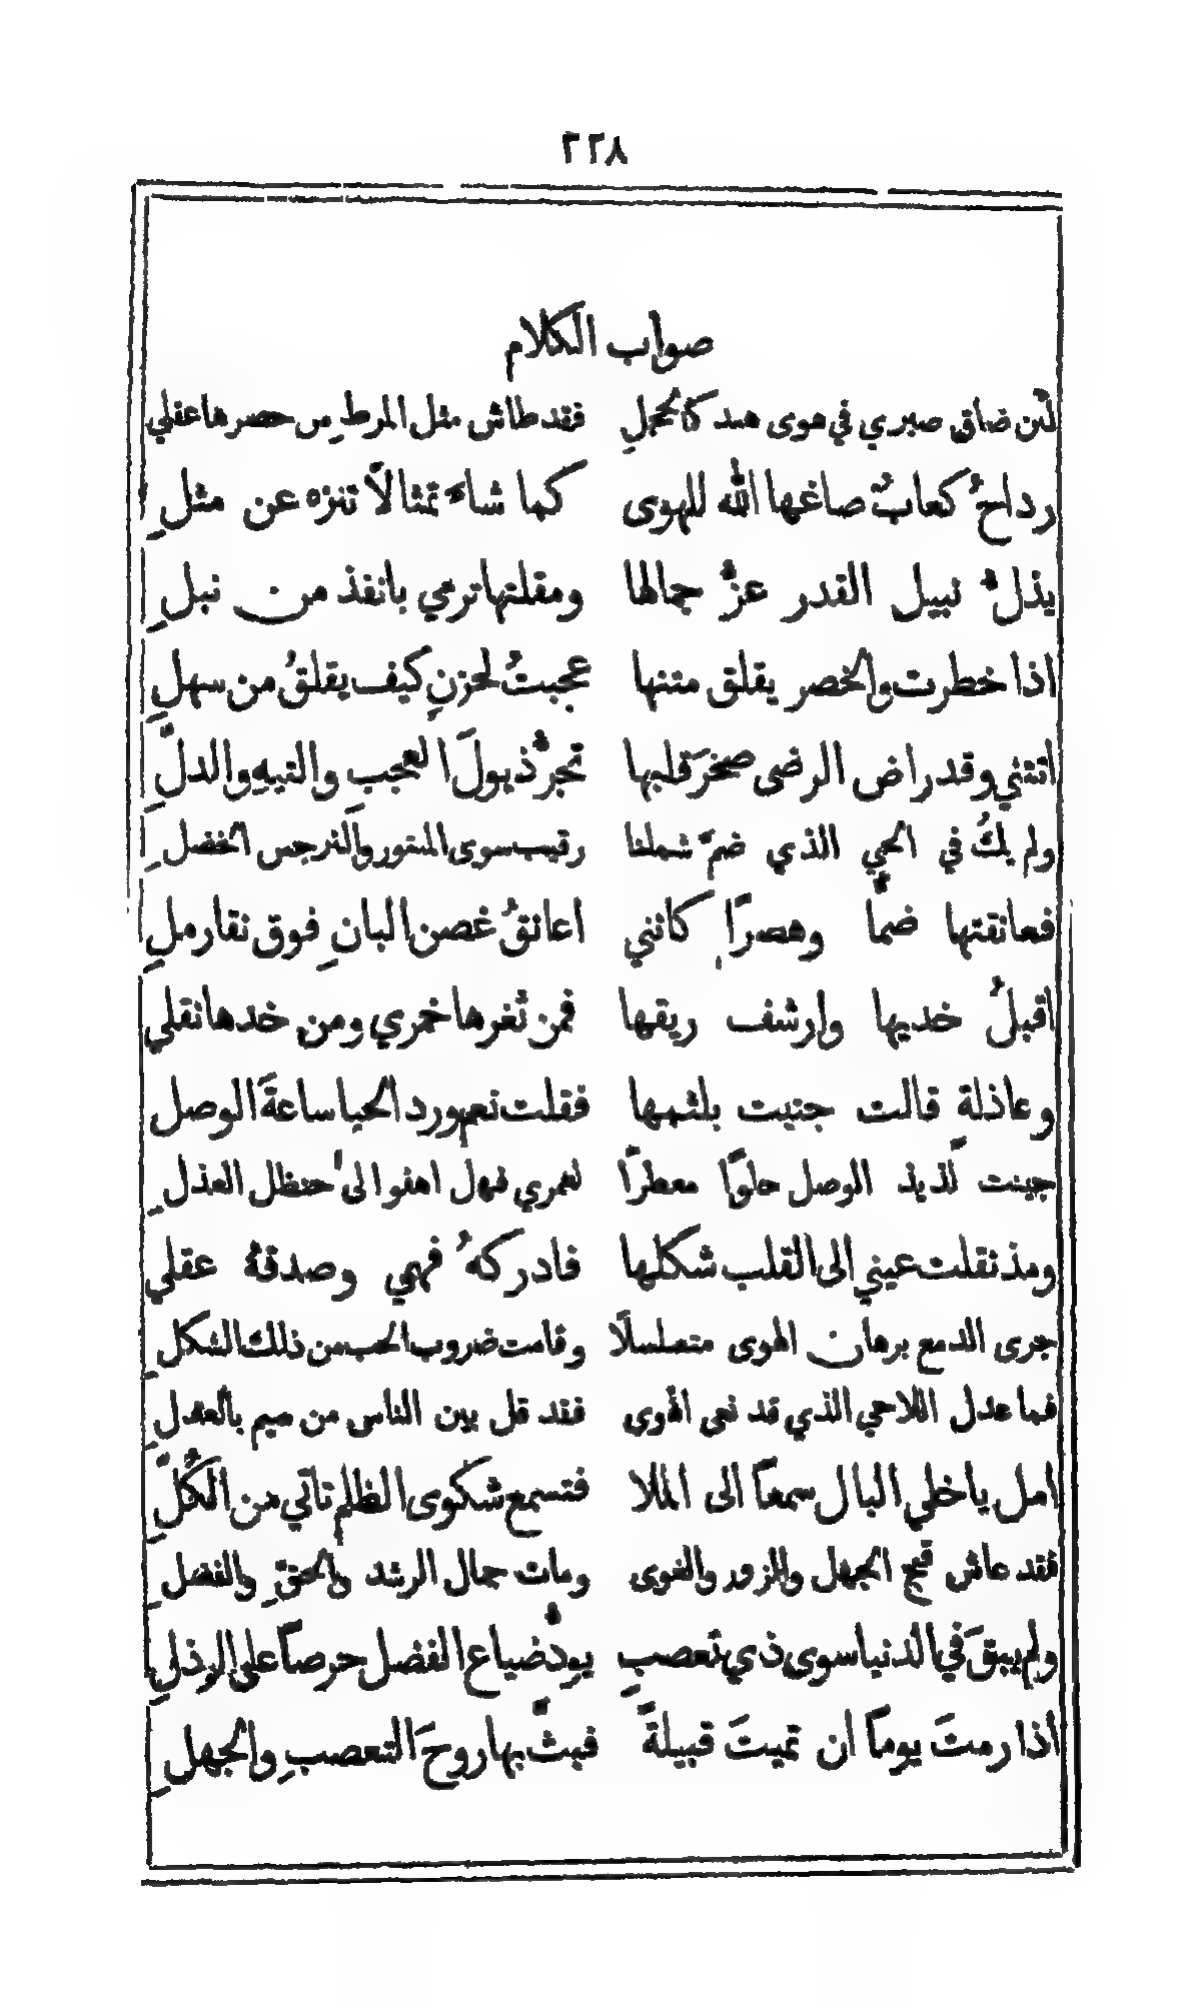 ٢٢٨
صواب الكلام
لئن ضاق صبري في هوى هند كالحجلِ فقد طاش مثل المرطِ من خصرها عقلي
رداحٌ كعابٌ صاغها الله للهوى كما شاءَ تمثالاً تنزه عن مثلِ
يذلُّ نبيل القدر عزُّ جمالها ومقلتها ترمي بانفذ من نبلِ
اذا خطرت والخصر يقلق متنها عجبتُ لحزنٍ كيف يقلقُ من سهلِ
اتتني وقد راض الرضى صخرَ قلبها تجرُّ ذيولَ العجبِ والتيهِ والدلِّ
ولم يكُ في الحي الذي ضمَّ شملنا رقيب سوى المنثور والنرجس الخضلِ
فعانقتها ضمّاً وهصرًا كانني اعانقُ غصن البانِ فوق نقا رملِ
اقبلُ خديها وارشف ريقها فمن ثغرها خمري ومن خدها نقلي
وعاذلة قالت جنيت بلثمها فقلت نعم ورد الحيا ساعةَ الوصل
جينت لذيذ الوصل حلوًا معطرًا لعمري فهل اهفو الى حنظل العذلِ
ومذ نقلت عيني الى القلب شكلها فادركهُ فهمي وصدقهُ عقلي
جرى الدمع برهان الهوى متسلسلًا وقامت ضروب الحب من ذلك الشكلِ
فما عدل اللاحي الذي قد نحى الهوى فقد قل بين الناس من ميم بالعدلِ
امل ياخلي البال سمعاً الى الملا فتسمع شكوى الظلم تاتي من الكُلِّ
فقد عاش قبح الجهل والزور والغوى ومات جمال الرشد والحقِ والفضلِ
ولم يبقَ في الدنيا سوى ذي تعصبٍ يودُّ ضياع الفضل حرصاً على الرذلِ
اذا رمتَ يوماً ان تميتَ قبيلةً فبثَّ بها روحَ التعصبِ والجهلِ